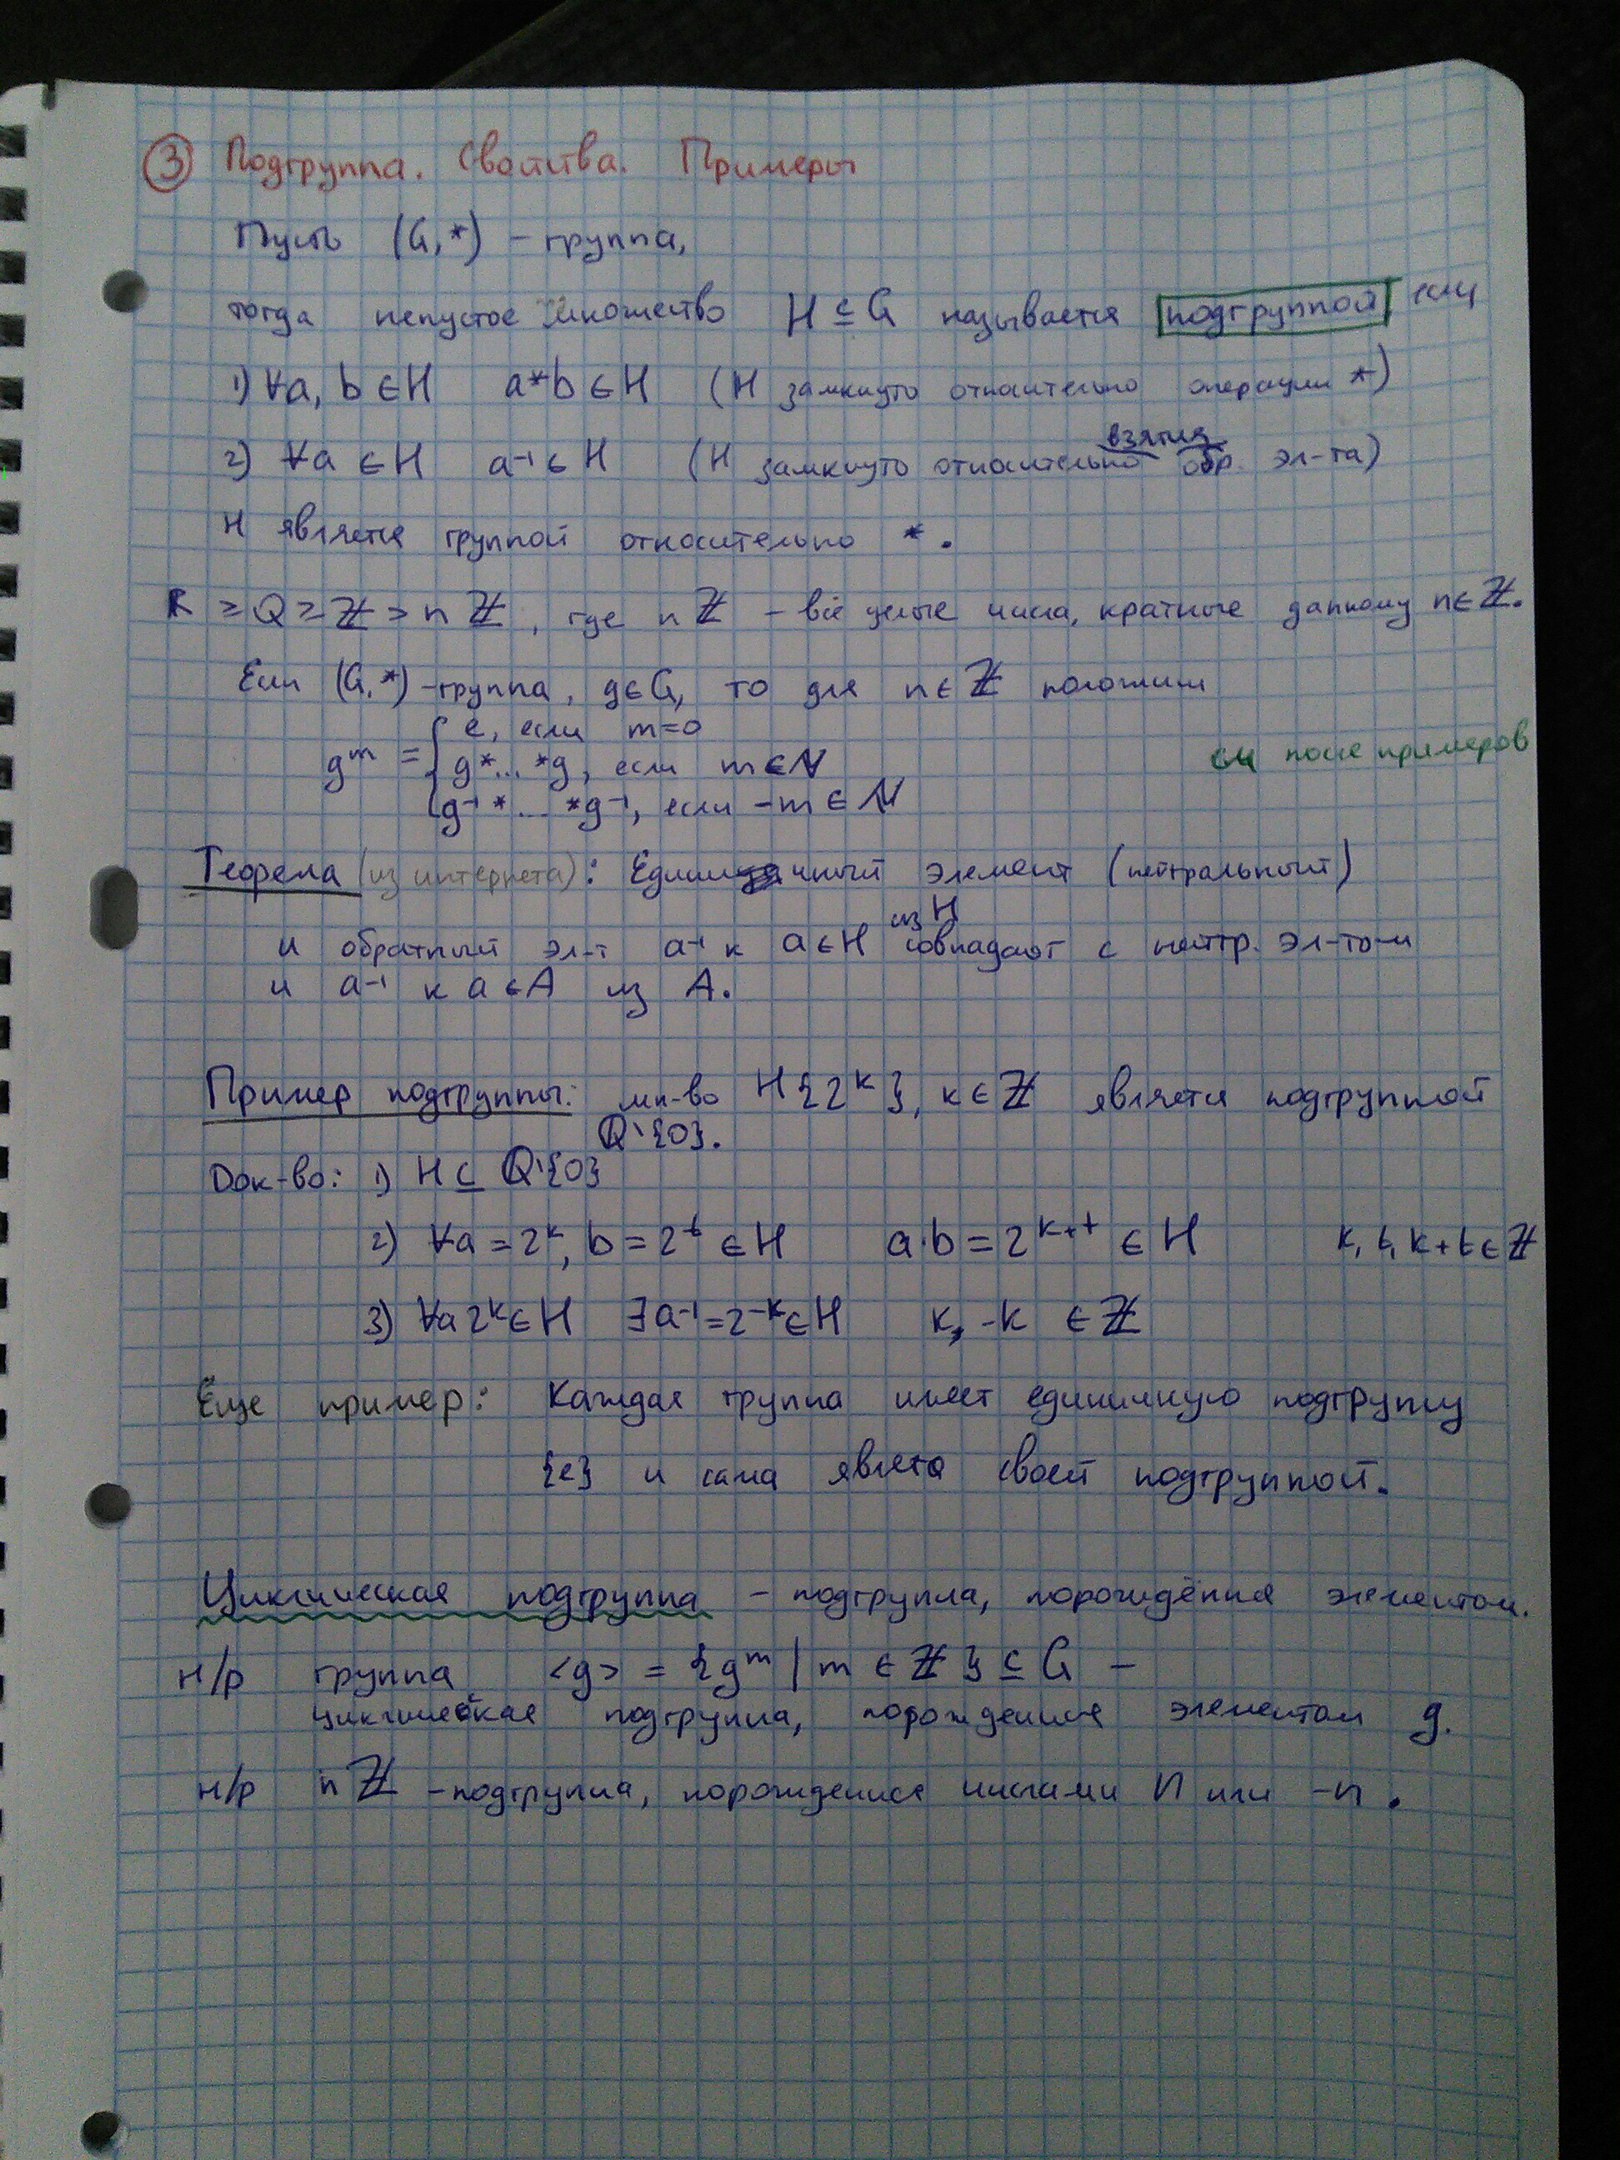 ③ Подгруппа. Свойства. Примеры
Пусть (G,*) – группа,
тогда непустое множество H ⊆ G называется подгруппой если
1) ∀a, b ∈ H a*b ∈ H (H замкнуто относительно операции *)
2) ∀a ∈ H a⁻¹ ∈ H (H замкнуто относительно взятия обр. эл-та)
H является группой относительно *.
R ≥ Q ≥ ℤ > nℤ, где nℤ – все целые числа, кратные данному n∈ℤ.
Если (G,*) – группа, g∈G, то для n∈ℤ положим
gᵐ = { e, если m=0
g*...*g, если m∈N
см после примеров
g⁻¹*...*g⁻¹, если -m∈N
Теорема (из интернета): Единичный элемент (нейтральный)
и обратный эл-т a⁻¹ к a∈H из H совпадают с нейтр. эл-том
и a⁻¹ к a∈A из A.
Пример подгруппы: мн-во H{2ᵏ}, k∈ℤ является подгруппой
ℚ\{0}.
Док-во: 1) H ⊆ ℚ\{0}
2) ∀a = 2ᵏ, b = 2ᵗ ∈ H a·b = 2ᵏ⁺ᵗ ∈ H k, t, k+t∈ℤ
3) ∀a 2ᵏ∈H ∃a⁻¹=2⁻ᵏ∈H k, -k ∈ℤ
Еще пример: Каждая группа имеет единичную подгруппу
{e} и сама явлется своей подгруппой.
Циклическая подгруппа – подгруппа, порождённая элементом.
н/р группа <g> = {gᵐ | m ∈ ℤ} ⊆ G –
циклическая подгруппа, порожденная элементом g.
н/р nℤ – подгруппа, порожденная числами n или -n.